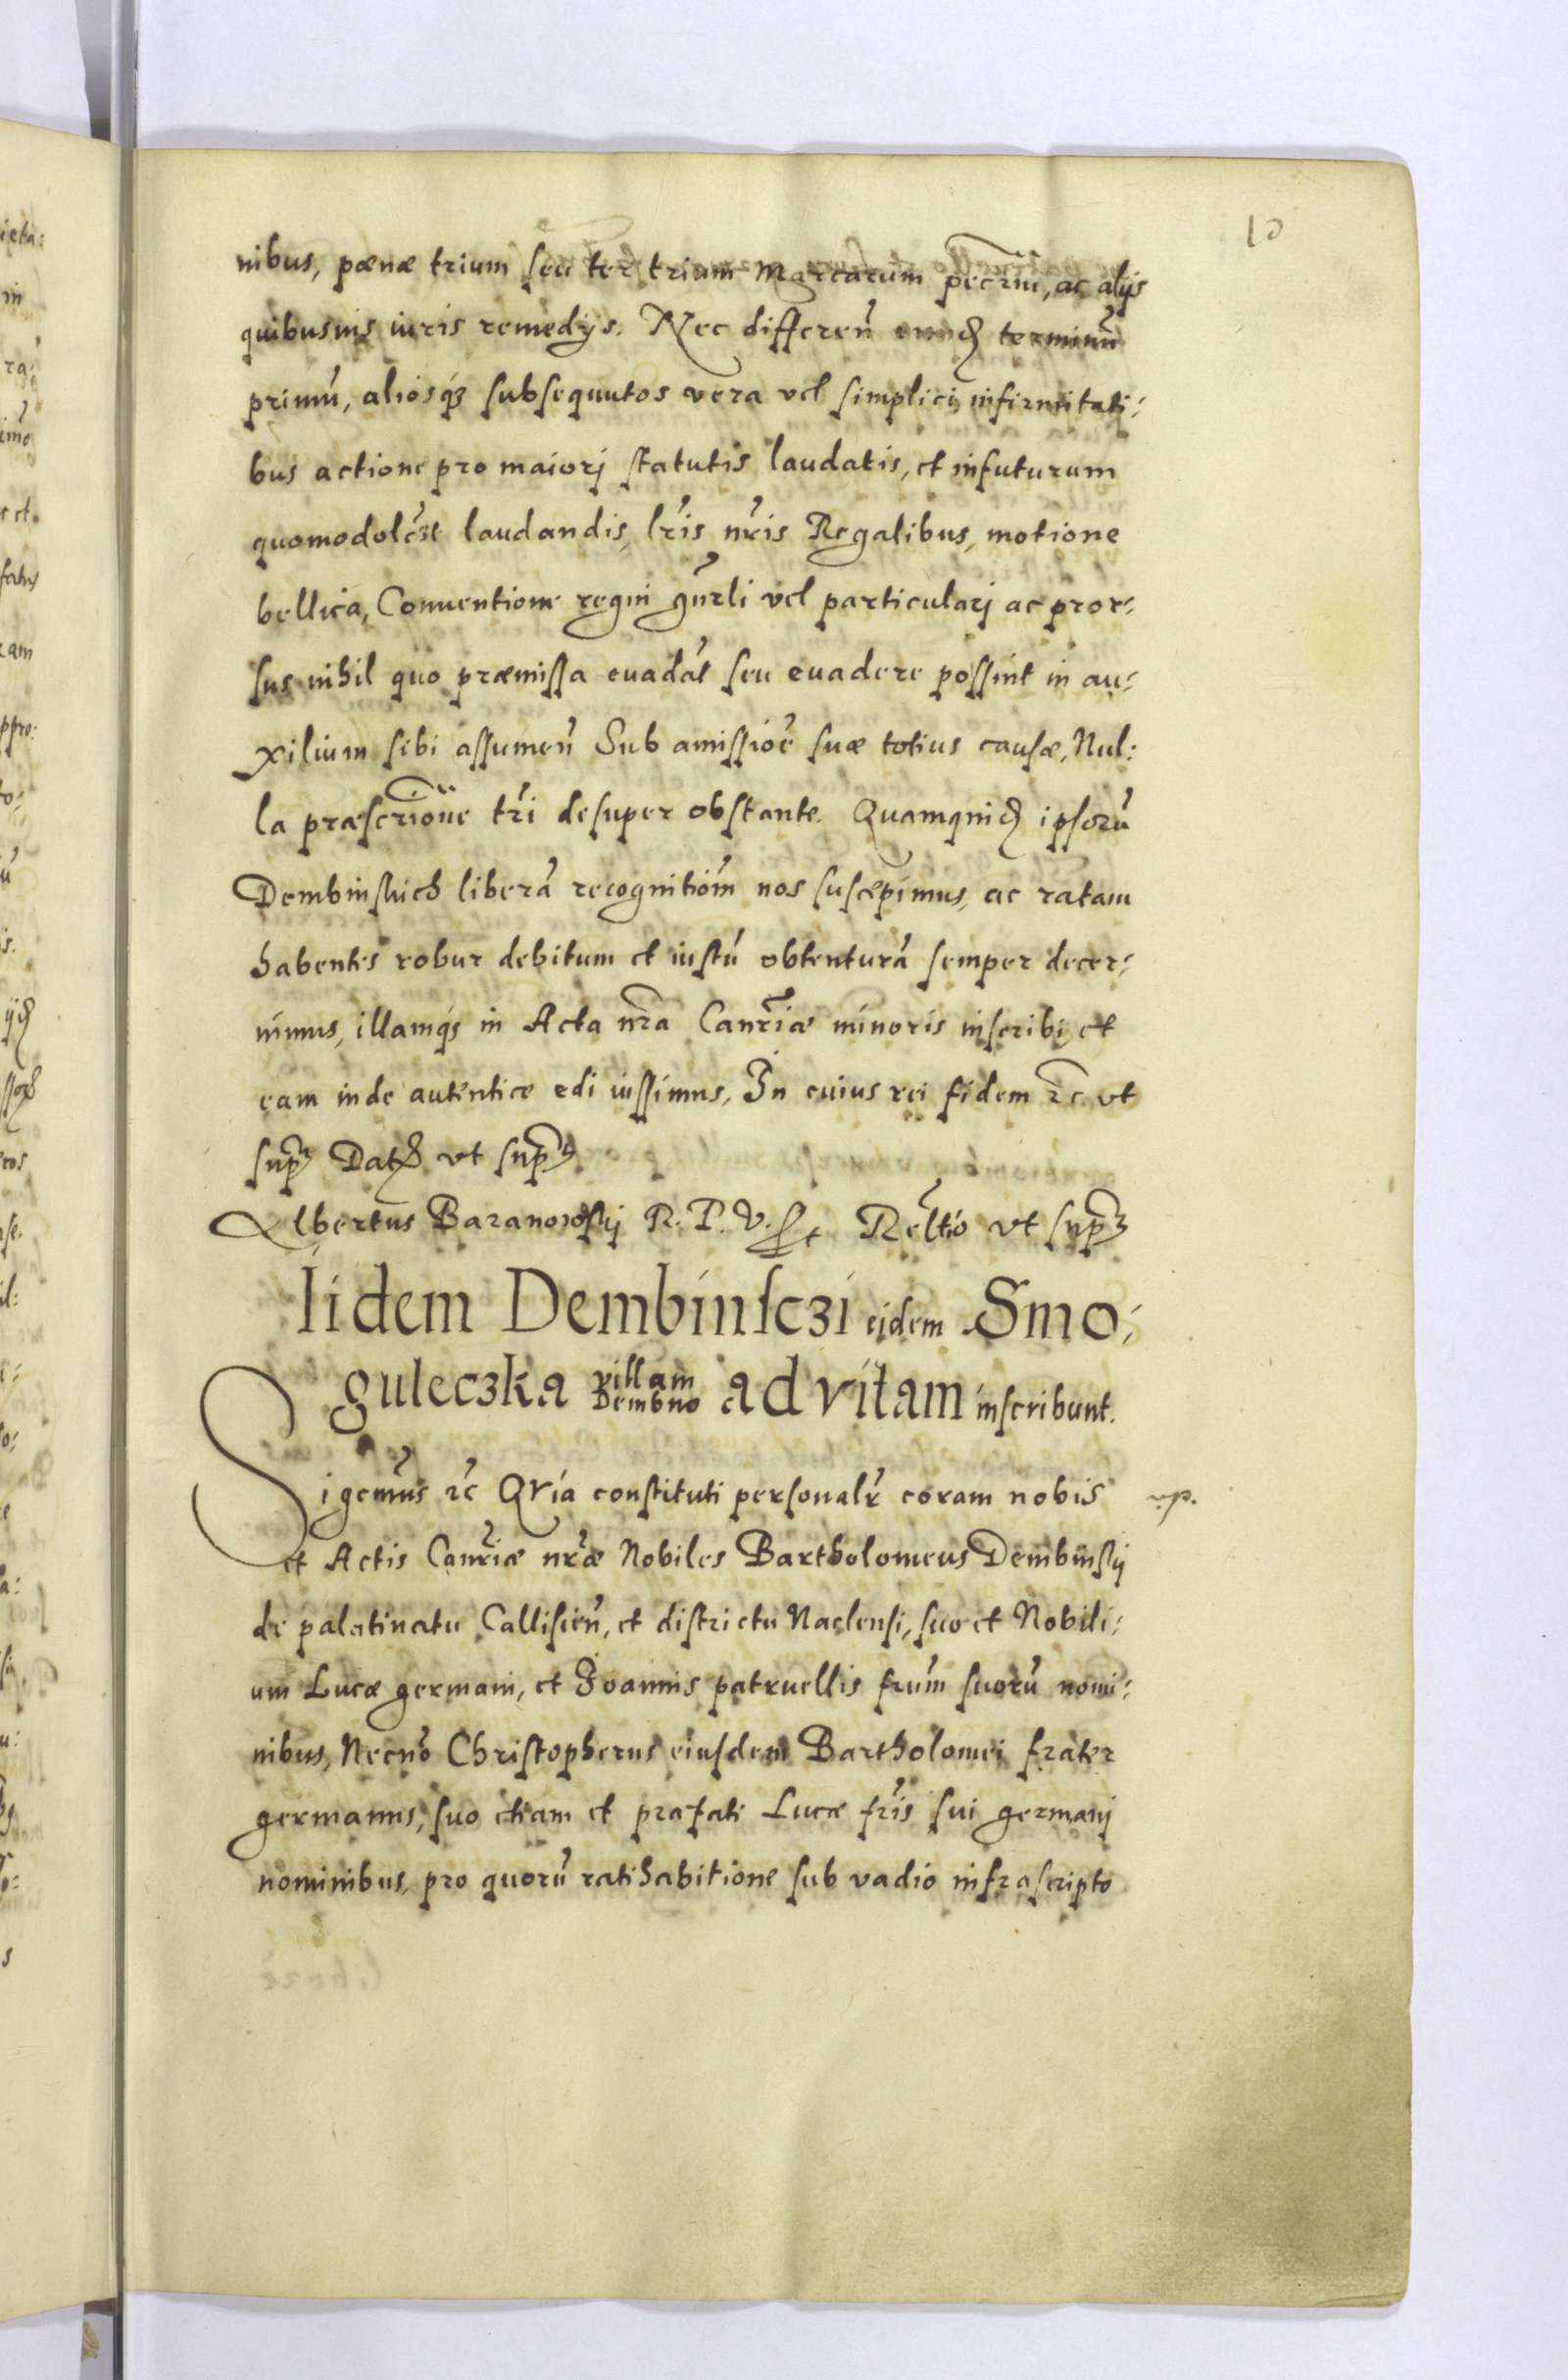 10
nibus, pœnæ trium seu ter trium Marcarum pecrīu, ac alijs
quibusuis iuris remedijs. Nec differeñ eund terminū
primū, aliosq3 subsequutos vera vel simplici, infirmitati:
bus actione pro maiorj statutis laudatis, et infuturum
quomodolēt laudandis, lr̄is nr̄is Regalibus, motione
bellica, Conuentione regni gnr̄li vel particularj ac pror:
sus nihil quo præmissa euadāt seu euadere possint in au:
xilium sibi assumeñ Sub amissiōe suæ totius causæ, Nul:
la præscriōne tr̄i desuper obstante. Quamquid ipsorū
Dembinskich liberā recognitiōm nos suscepimus, ac ratam
habentes robur debitum et iustū obtenturā semper decer:
nimus, illamqs in Acta nr̄a Canr̄iæ minoris inscribi, et
eam inde autentice edi iussimus, In cuius rei fidem 2c vt
supra Dat vt supra
Albertus Baranowskij R. P. V. Relatio vt supra
Iidem Dembinsczi ejdem Smo:
guleczka villam Dembno ad vitam inscribunt.
Sigemūs 2c Qvia constituti personalr̄ coram nobis
v.p.
et Actis Canr̄iæ nr̄æ Nobiles Bartholomeus Dembinskij
de palatinatu Callisieñ, et districtu Naclensi, suo et Nobili:
um Lucæ germani, et Joannis patruellis frūm suorū nomi:
nibus, Necnō Christopherus eiusdem Bartholomei frater
germanus, suo etiam et præfati Lucæ fr̄is sui germanj
nominibus, pro quorū ratihabitione sub vadio infrascripto